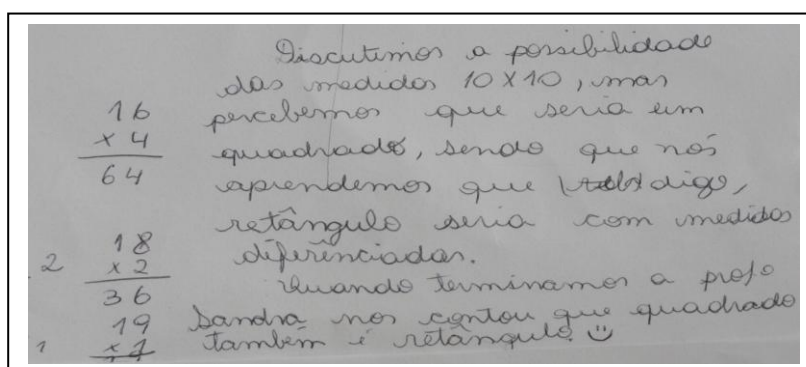 Discutimos a possibilidade
das medidas 10X10, mas
percebemos que seria um
quadrado, sendo que nós
aprendemos que digo,
retângulo seria com medidas
diferênciadas.
Quando terminamos a profª
Sandra nos contou que quadrado
também é retângulo. ☺
16
x 4
64
2 18
x 2
36
19
1 x 1